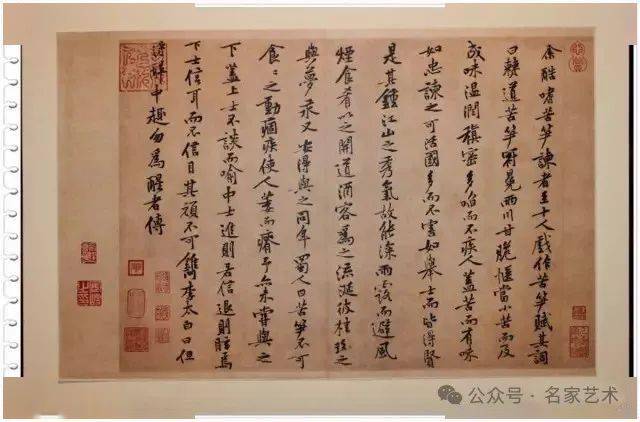 余酷嗜苦笋諫者至十人戲作苦笋賦其詞
曰僰道苦笋冠冕兩川甘脆愜當小苦而反
成味温潤縝密多啗而不疾人蓋苦而有味
如忠諫之可活國多而不害如舉士而皆得賢
是其鍾江山之秀氣故能深雨露而避風
煙食肴以之開道酒客為之流涎彼桂玫之
與夢汞又安得與之同年蜀人曰苦笋不可
食〻之動痼疾使人萎而瘠予亦未嘗與之
下蓋上士不談而喻中士進則若信退則眩焉
下士信耳而不信目其頑不可鐫李太白曰但
得醉中趣勿為醒者傳
公众号·名家艺术